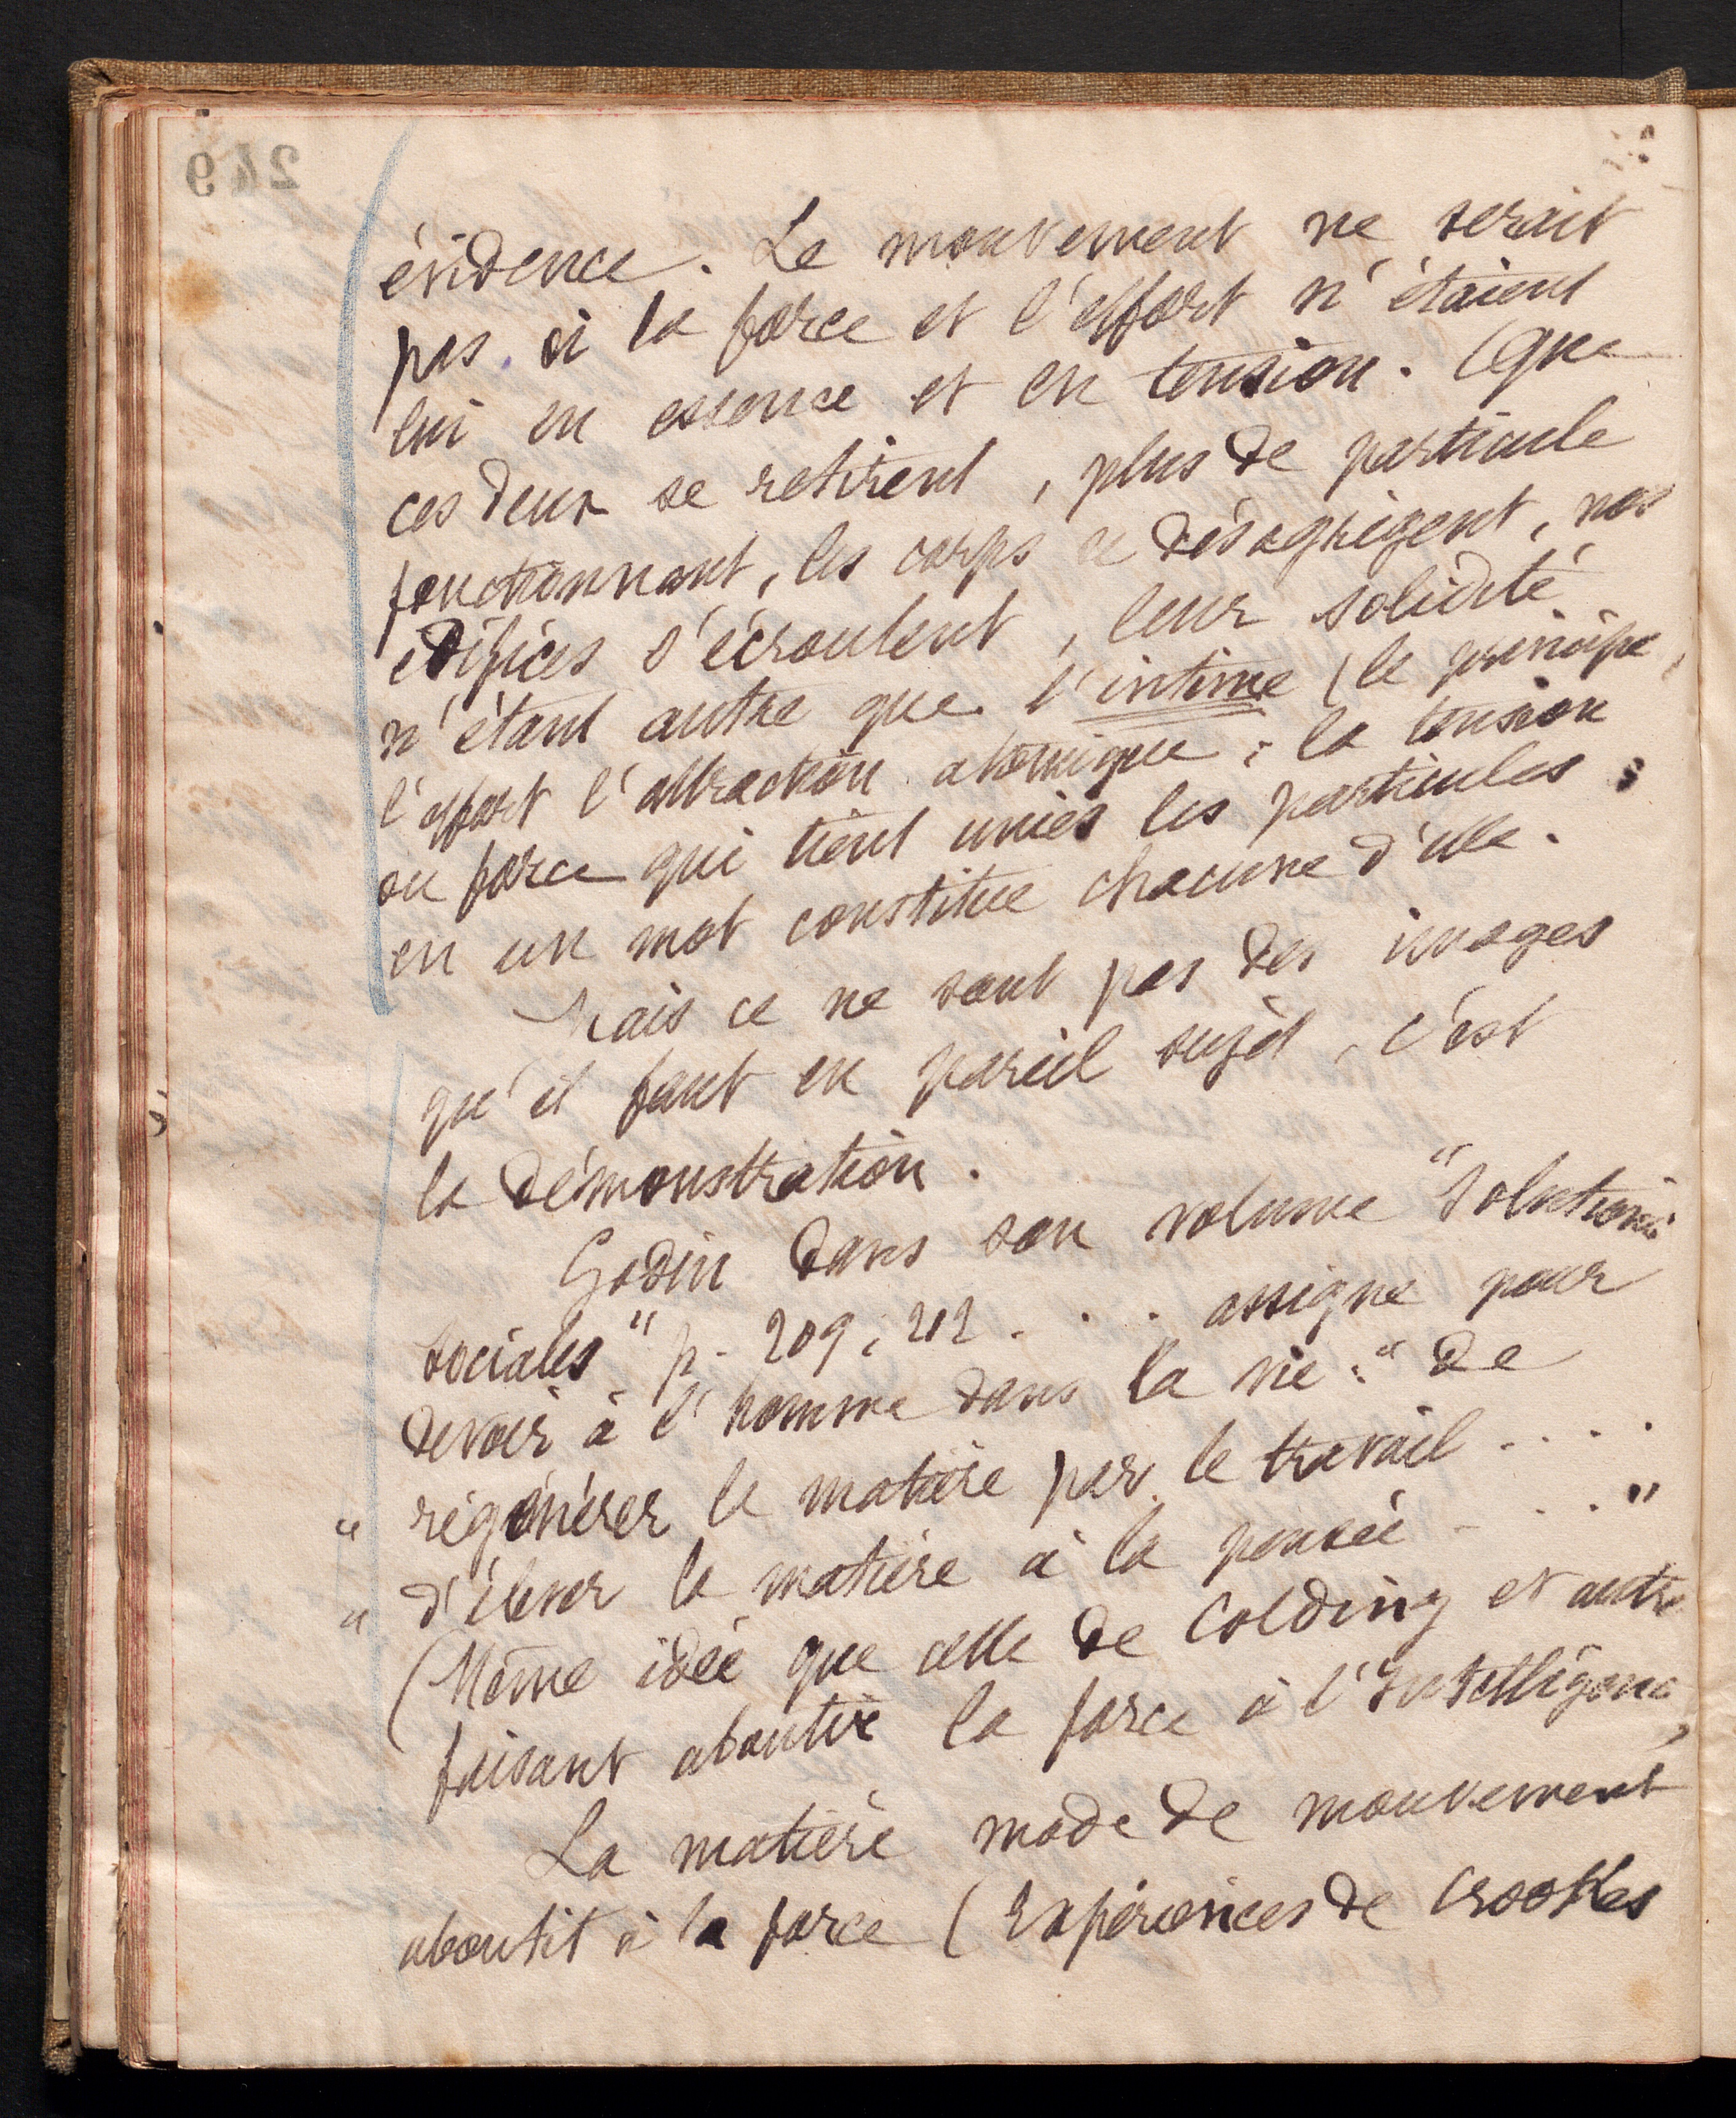 évidence. Le mouvement ne serait
pas si la force et l'effort n'étaient
lui en essence et en tension. Que
ces deux se retirent, plus de particule
fonctionnant, les corps se désagrègent, nos
édifices s'écroulent, leur solidité
n'étant autre que l'intime (le principe,
l'effort l'attraction atomique; la tension
ou force qui tient unies les particules;
en un mot constitue chacune d'elle.
Mais ce ne sont pas des images
qu'il faut en pareil sujet, c'est
la démonstration.
Godin dans son volume "Solutions
sociales" p. 209, 212 . . . assigne pour
devoir à l'homme dans la vie: "de
" régénérer la matière par le travail ....
" d'élever la matière à la pensée ...."
(Même idée que celle de Colding et autre
faisant aboutir la force à l'Intelligence,
La matière mode de mouvement
aboutit à la force (Expériences de Crookes
249